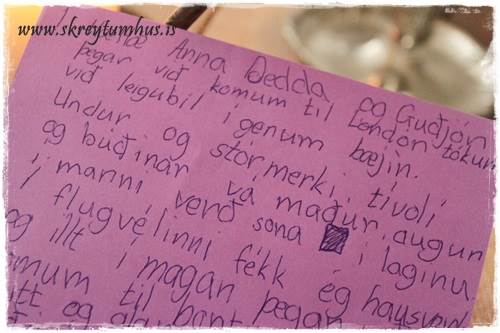 www.skreytumhus.is
Anna Dedda og Guðjón
þegar við komum til London tókum
við leigubíl í genum bæjin.
Undur og stórmerki, tívolí
og búðinar vá maður. augun
í manni verð sona i laginu.
Í flugvélinni fékk ég
og illt í magan þegar
til
og